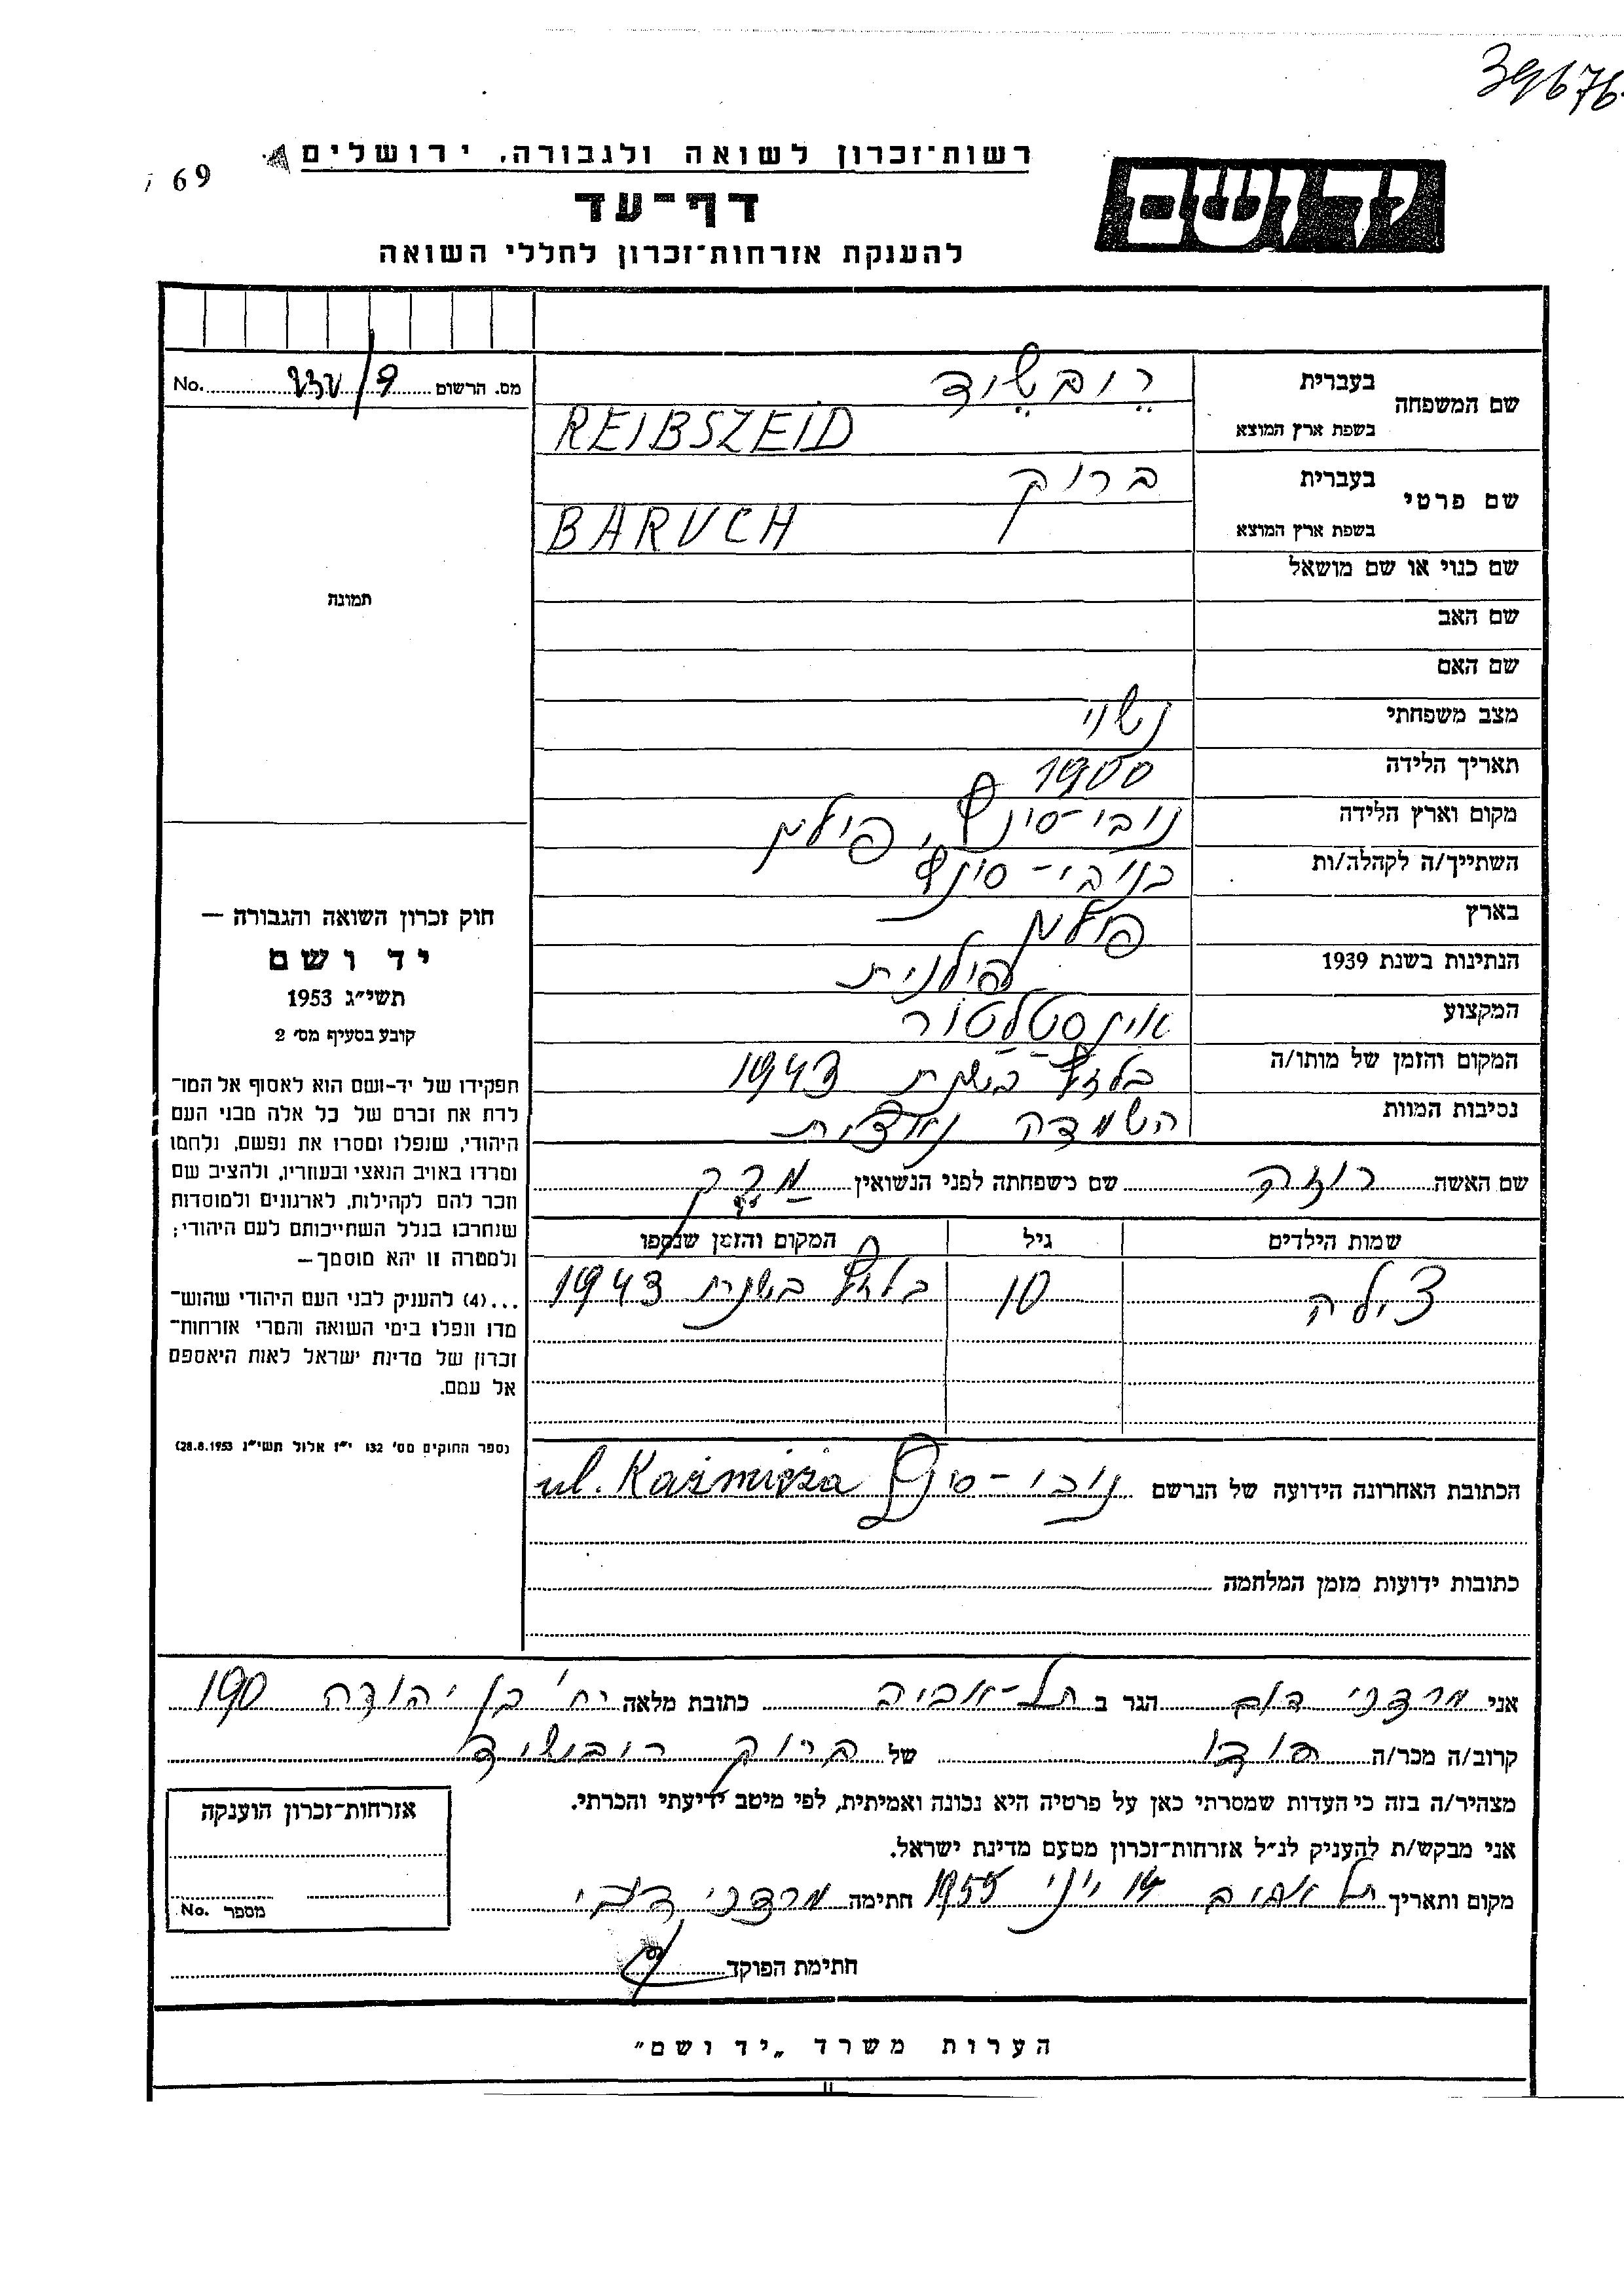 39676
69
רשות־זכרון לשואה ולגבורה, ירושלים
יד ושם
דף־עד
להענקת אזרחות־זכרון לחללי השואה
מס. הרשום No.
שם המשפחה
בעברית
רובשיד
בשפת ארץ המוצא
REIBSZEID
שם פרטי
בעברית
ברוך
בשפת ארץ המוצא
BARUCH
שם כנוי או שם מושאל
שם האב
שם האם
מצב משפחתי נשוי
תאריך הלידה 1900
מקום וארץ הלידה נובי-סונץ, פולין
השתייך/ה לקהלה/ות בנובי-סונץ
בארץ פולין
הנתינות בשנת 1939 פולנית
המקצוע אינסטלטור
המקום והזמן של מותו/ה בלזץ בשנת 1943
נסיבות המוות השמדה נאצית
שם האשה רוזה שם משפחתה לפני הנשואין
שמות הילדים גיל המקום והזמן שנספו
צילה 10 בלזץ בשנת 1943
הכתובת האחרונה הידועה של הנרשם נובי-סונץ ul. Kaźmirza
כתובות ידועות מזמן המלחמה
תמונה
חוק זכרון השואה והגבורה —
יד ושם
תשי״ג 1953
קובע בסעיף מס׳ 2
תפקידו של יד-ושם הוא לאסוף אל המו־
לדת את זכרם של כל אלה מבני העם
היהודי, שנפלו ומסרו את נפשם, נלחמו
ומרדו באויב הנאצי ובעוזריו, ולהציב שם
וזכר להם לקהילות, לארגונים ולמוסדות
שנחרבו בגלל השתייכותם לעם היהודי;
ולמטרה זו יהא מוסמך —
...(4) להעניק לבני העם היהודי שהוש־
מדו ונפלו בימי השואה והמרי אזרחות־
זכרון של מדינת ישראל לאות היאספם
אל עמם.
(ספר החוקים מס׳ 132 י״ז אלול תשי״ג 28.8.1953)
אני מרדכי דוב הגר ב תל-אביב כתובת מלאה רח׳ בן יהודה 190
קרוב/ה מכר/ה דודו של ברוך רובשיד
מצהיר/ה בזה כי העדות שמסרתי כאן על פרטיה היא נכונה ואמיתית, לפי מיטב ידיעתי והכרתי.
אני מבקש/ת להעניק לנ״ל אזרחות־זכרון מטעם מדינת ישראל.
מקום ותאריך תל אביב 14 יוני 1955 חתימה מרדכי
חתימת הפוקד
אזרחות־זכרון הוענקה
מספר No.
הערות משרד „יד ושם״